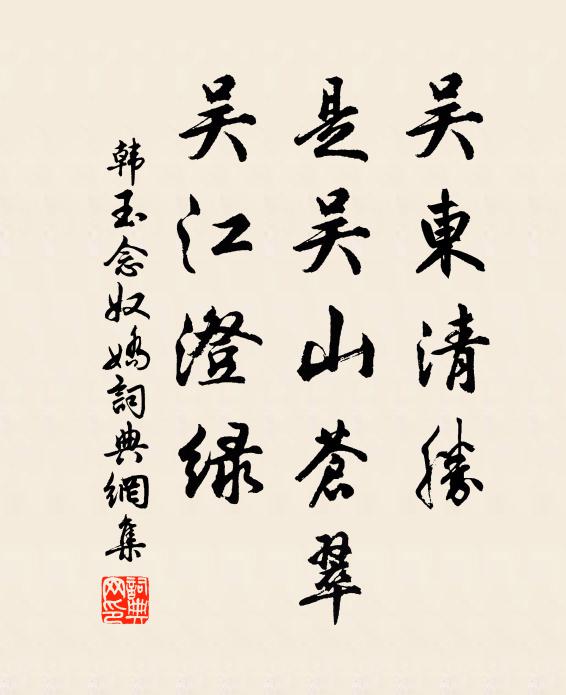 吴東清勝
是吴山蒼翠
吴江澄绿
韩玉念奴嬌詞典網集
詞典网印